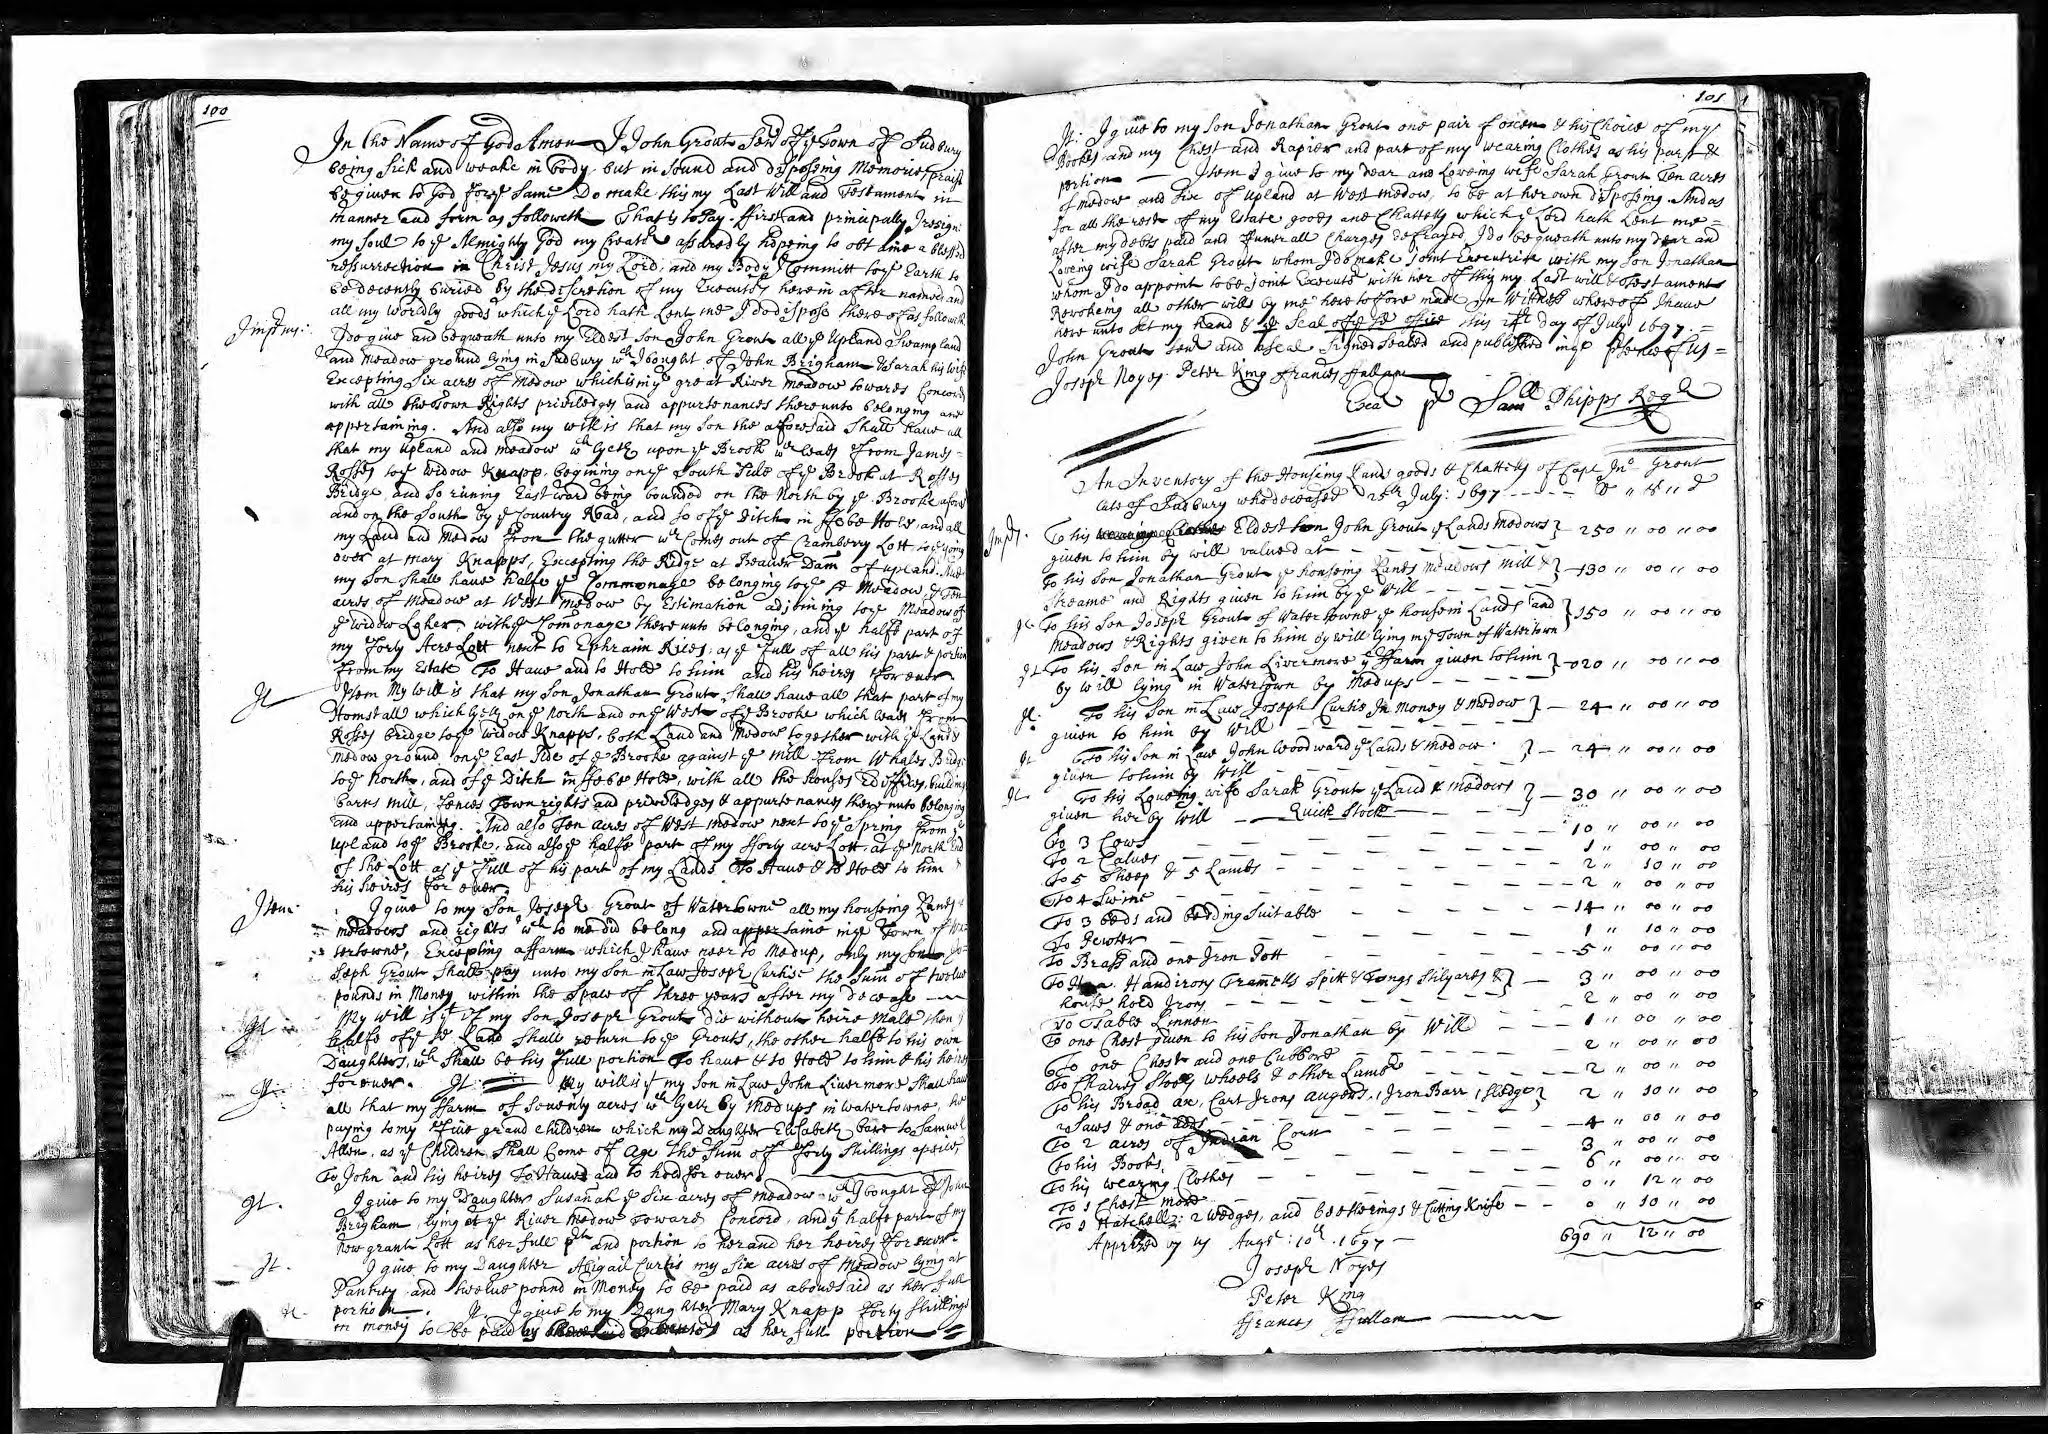 100
In the Name of God Amen I John Grout Senr of ye Town of Sudbury
being Sick and weake in body, but in sound and disposing Memorie, praise
be given to God for ye same Do make this my Last Will and Testament in
manner and form as followeth That is to say. ffirst and principally I resign
my Soul to ye Almighty God my Creatr assuredly hopeing to obtaine a blessed
ressurrection in Christ Jesus my Lord, and my Body I Committ to ye Earth to
be decently buried by the discretion of my Executors herein after named and
all my worldly goods which ye Lord hath Lent me I do dispose thereof as followeth
Imprms: I do give and bequeath unto my Eldest Son John Grout all ye Upland Swamp land
and meadow ground lying in Sudbury wch I bought of John Brigham & Sarah his wife
Excepting Six acres of medow which is in ye great River meadow towards Concord
with all the Town Rights priviledges and appurtenances thereunto belonging and
appertaining. And also my will is that my son the aforesaid Shall have all
that my Upland and meadow wch lyeth upon ye Brook wch leads from James
Rosses to ye widow Knapp, begining on ye South side of ye Brook at Rosses
Bridge and so runing Eastward being bounded on the North by ye Brooke afores
and on the South by ye Country Road, and so of ye Ditch in ffebe Hole, and all
my Land and Medow from the gutter wch comes out of Cramberry Lott to ye going
over at mary Knapps, Excepting the Ridge at Beaver Dam of upland. And
my Son Shall have halfe ye Commonage belonging to ye sd Meadow, & Ten
acres of Meadow at West medow by Estimation adjoining to ye Meadow of
ye widow Loker, with ye Comonage thereunto belonging, and ye halfe part of
my Forty Acre Lott next to Ephraim Rices, as ye Full of all his part & portion
From my Estate To Have and to Hold to him and his heires For ever.
It Item My Will is that my Son Jonathan Grout, Shall have all that part of my
Homstall which lyeth on ye North and on ye West of ye Brooke which leads from
Rosses bridge to ye widow Knapps, both Land and Medow together with ye Land &
medow ground on ye East side of ye Brooke against ye mill From Whales Bridge
to ye North, and of ye Ditch in ffebe Hole, with all the houses Edifices, buildings
barns mill, Fences Town rights and priviledges & appurtenances thereunto belonging
and appertaining. And also Ten acres of West medow next to ye Spring From ye
upland to ye Brooke, and also ye halfe part of my fforty acre Lott, at ye North End
of the Lott as ye Full of his part of my Lands To Have & to Hold to him &
his heires For ever.
Item. I give to my Son Joseph Grout of Watertowne all my houseing Lands
meadows and rights wch to me did belong and appertaine in ye Town of Wa
tertowne, Excepting a ffarm which I have neer to Medup, only my son Jo
seph Grout shall pay unto my son in Law Joseph Curtise the sum of twelve
pounds in Money within the Space of three years after my decease
It My Will is yt if my son Joseph Grout die without heire Male then ye
halfe of ye sd Land Shall return to ye Grouts, the other halfe to his own
Daughters, wch Shall be his Full portion To have & to Hold to him & his heires
for ever. It
It. My will is yt my Son in Law John Livermore Shall have
all that my ffarm of Seventy acres wch lyeth by Medups in Watertowne, he
paying to my Five grand children which my Daughter Elisabeth bare to Samuel
Allen, as ye Children Shall Come of age the Sum of Forty Shillings apeice,
To John and his heires To Have and to hold for ever
It. I give to my Daughter Susanah ye Six acres of meadow wch I bought of John
Brigham, lying at ye River Medow toward Concord, and ye halfe part of my
new grant Lott as her full prt and portion to her and her heires for ever
It. I give to my Daughter Abigail Curtis my Six acres of Meadow lying at
Pantry and twelve pound in Money to be paid as abovesaid as her full
portion. It. I give to my Daughter Mary Knapp Forty Shillings
in money to be paid by as her full portion
101
It. I give to my Son Jonathan Grout one pair of oxen & his Choice of my
Bookes and my Chest and Rapier and part of my wearing Clothes as his part &
portion Item I give to my dear and Loveing wife Sarah Grout Ten acres
of medow and Six of Upland at West medow, to be at her own disposing. And as
for all the rest of my Estate goods and Chattells which ye Lord hath Lent me
after my debts paid and Funerall Charges defrayed, I do bequeath unto my dear and
Loveing wife Sarah Grout whom I do make Joint Executrix with my Son Jonathan
whom I do appoint to be joint Executr with her of this my Last will & Testament
Revokeing all other wills by me heretofore made In Witness whereof I have
hereunto Set my hand & ye Seal of ye office this day of July 1697.
John Grout Senr and a Seal Signed Sealed and published in ye presence of us
Joseph Noyes. Peter King ffrances ffullam
Exa pr Samll Phipps Regr
An Inventory of the Houseing Lands goods & Chattels of Capt Jno Grout
late of Sudbury who deceased 25th July: 1697
Imprs. To his Eldest Son John Grout ye Lands medows } 250 " 00 " 00
given to him by will valued at
To his Son Jonathan Grout ye houseing Lands meadows mill & } 130 " 00 " 00
Streame and Rights given to him by ye Will
It. To his Son Joseph Grout of Watertowne ye housein Lands and } 150 " 00 " 00
Meadows & Rights given to him by will lying in ye Town of Watertown
It To his Son in Law John Livermore ye ffarm given to him } 020 " 00 " 00
by will lying in Watertown by Medups
It. To his Son in Law Joseph Curtis In Money & medow } 24 " 00 " 00
given to him by Will
It To his Son in Law John Woodward ye Lands & medow } 24 " 00 " 00
given to him by Will
It. To his Loveing wife Sarah Grout ye Land & medows } 30 " 00 " 00
given her by Will Quick Stock
To 3 Cows 10 " 00 " 00
To 2 Calves 1 " 00 " 00
To 5 Sheep & 5 Lambs 2 " 10 " 00
To 4 Swine 2 " 00 " 00
To 3 beds and bedding Suitable 14 " 00 " 00
To Pewter 1 " 10 " 00
To Brass and one Iron Pott 5 " 00 " 00
To Handirons Tramells Spitt & Tongs Stilyards & } 3 " 00 " 00
house hold Irons
To Table Linnen 2 " 00 " 00
To one Chest given to his Son Jonathan by Will 1 " 00 " 00
To one Chest and one Cubbord 2 " 00 " 00
To Chaires Stools wheels & other Lumbr 2 " 00 " 00
To his Broad ax, Cart Irons augers, 1 Iron Barr 1 sledge } 2 " 10 " 00
2 Saws & one
To 2 acres of Indian Corn 4 " 00 " 00
To his Books 3 " 00 " 00
To his wearing Clothes 6 " 00 " 00
To 1 Chest more 0 " 12 " 00
To 1 Hatchell: 2 wedges, and beetlerings & Cutting Knife 0 " 10 " 00
Apprized by us Augst: 10th. 1697 690 " 12 " 00
Joseph Noyes
Peter King
ffrances ffullam